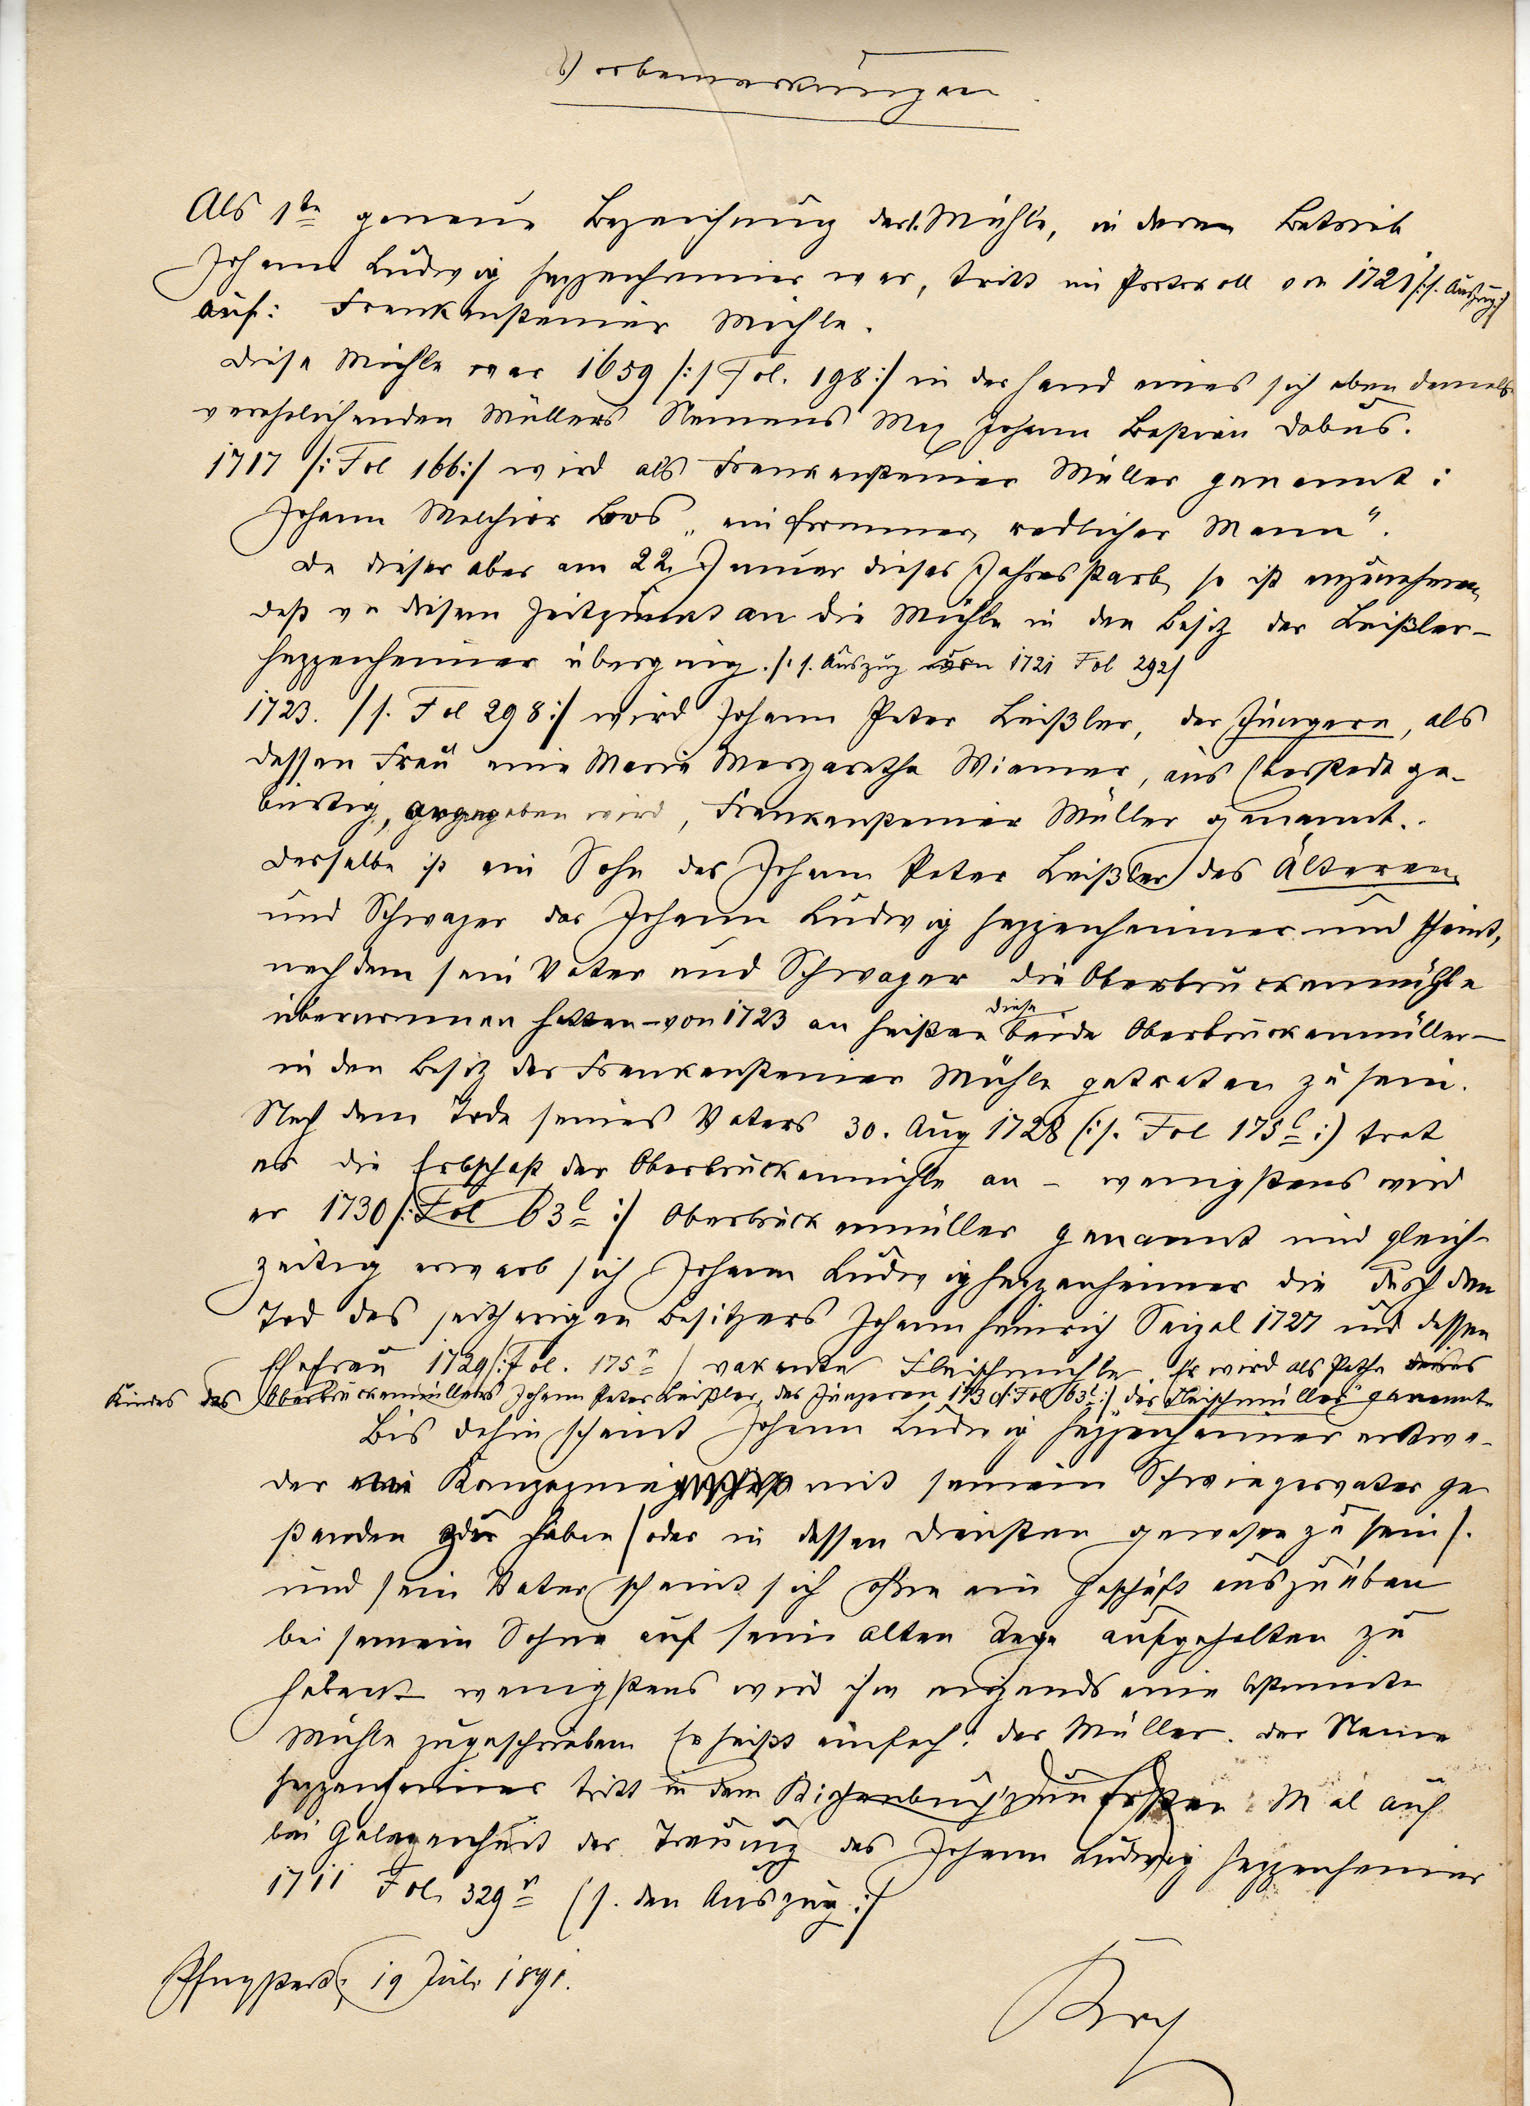 Vorbemerkungen.
Als 1te genaue Bezeichnung der Mühle, in deren Betrieb
Johann Ludwig Heppenheimer war, tritt im Protokoll von 1721 /: s. Auszug :/
auf: Frankensteiner Mühle.
Diese Mühle war 1659 /: s Fol. 198 :/ in der Hand eines sich eben damals
verehelichenden Müllers Namens Max Johann Bastian Dabus.
1717 /: Fol 166 :/ wird als Frankensteiner Müller genannt:
Johann Melchior Bos „ein frommer, redlicher Mann".
Da dieser aber am 22. Januar dieses Jahres starb, so ist anzunehmen,
daß von diesem Zeitpunkt an die Mühle in den Besitz der Leißler-
Heppenheimer überging. /: s. Auszug von 1721 Fol 292/
1723. /s. Fol 298 :/ wird Johann Peter Leißler, der Jüngere, als
dessen Frau eine Maria Margaretha Wiemer, aus Eberstadt ge-
bürtig, angegeben wird, Frankensteiner Müller genannt.
Derselbe ist ein Sohn des Johann Peter Leißler des Älteren,
und Schwager des Johann Ludwig Heppenheimer und scheint,
nachdem sein Vater und Schwager die Oberbruckenmühle
übernommen hatten – von 1723 an heißen diese beide Oberbruckenmüller –
in den Besitz der Frankensteiner Mühle getreten zu sein.
Nach dem Tode seines Vaters 30. Aug 1728 (: s. Fol 175l :) trat
er die Erbschaft der Oberbruckenmühle an – wenigstens wird
er 1730 /: Fol 63l :/ Oberbruckenmüller genannt und gleich-
zeitig erwarb sich Johann Ludwig Heppenheimer die durch den
Tod des seitherigen Besitzers Johann Heinrich Seizel 1727 und dessen
Ehefrau 1729 /: Fol. 175r / vakante Fleischmühle. Er wird als Pathe dieses
Kindes des Oberbruckenmüllers Johann Peter Leißler, des Jüngeren 1730 /: Fol 63l :/ der „Fleischmüller" genannt.
Bis dahin scheint Johann Ludwig Heppenheimer entwe-
der in Kompagnie mit seinem Schwiegervater ge
standen zu haben / oder in dessen Diensten gewesen zu sein /.
und sein Vater scheint sich ohne ein Geschäft auszuüben
bei seinem Sohne auf seine alten Tage aufgehalten zu
haben – wenigstens wird ihm nirgends eine bestimmte
Mühle zugeschrieben. Er heißt einfach: der Müller. Der Name
Heppenheimer tritt in dem Kirchenbuch zum Ersten Mal auf
bei Gelegenheit der Trauung des Johann Ludwig Heppenheimer
1711 Fol. 329r (s. den Auszug :/
Pfungstadt, 19 Juli 1891.